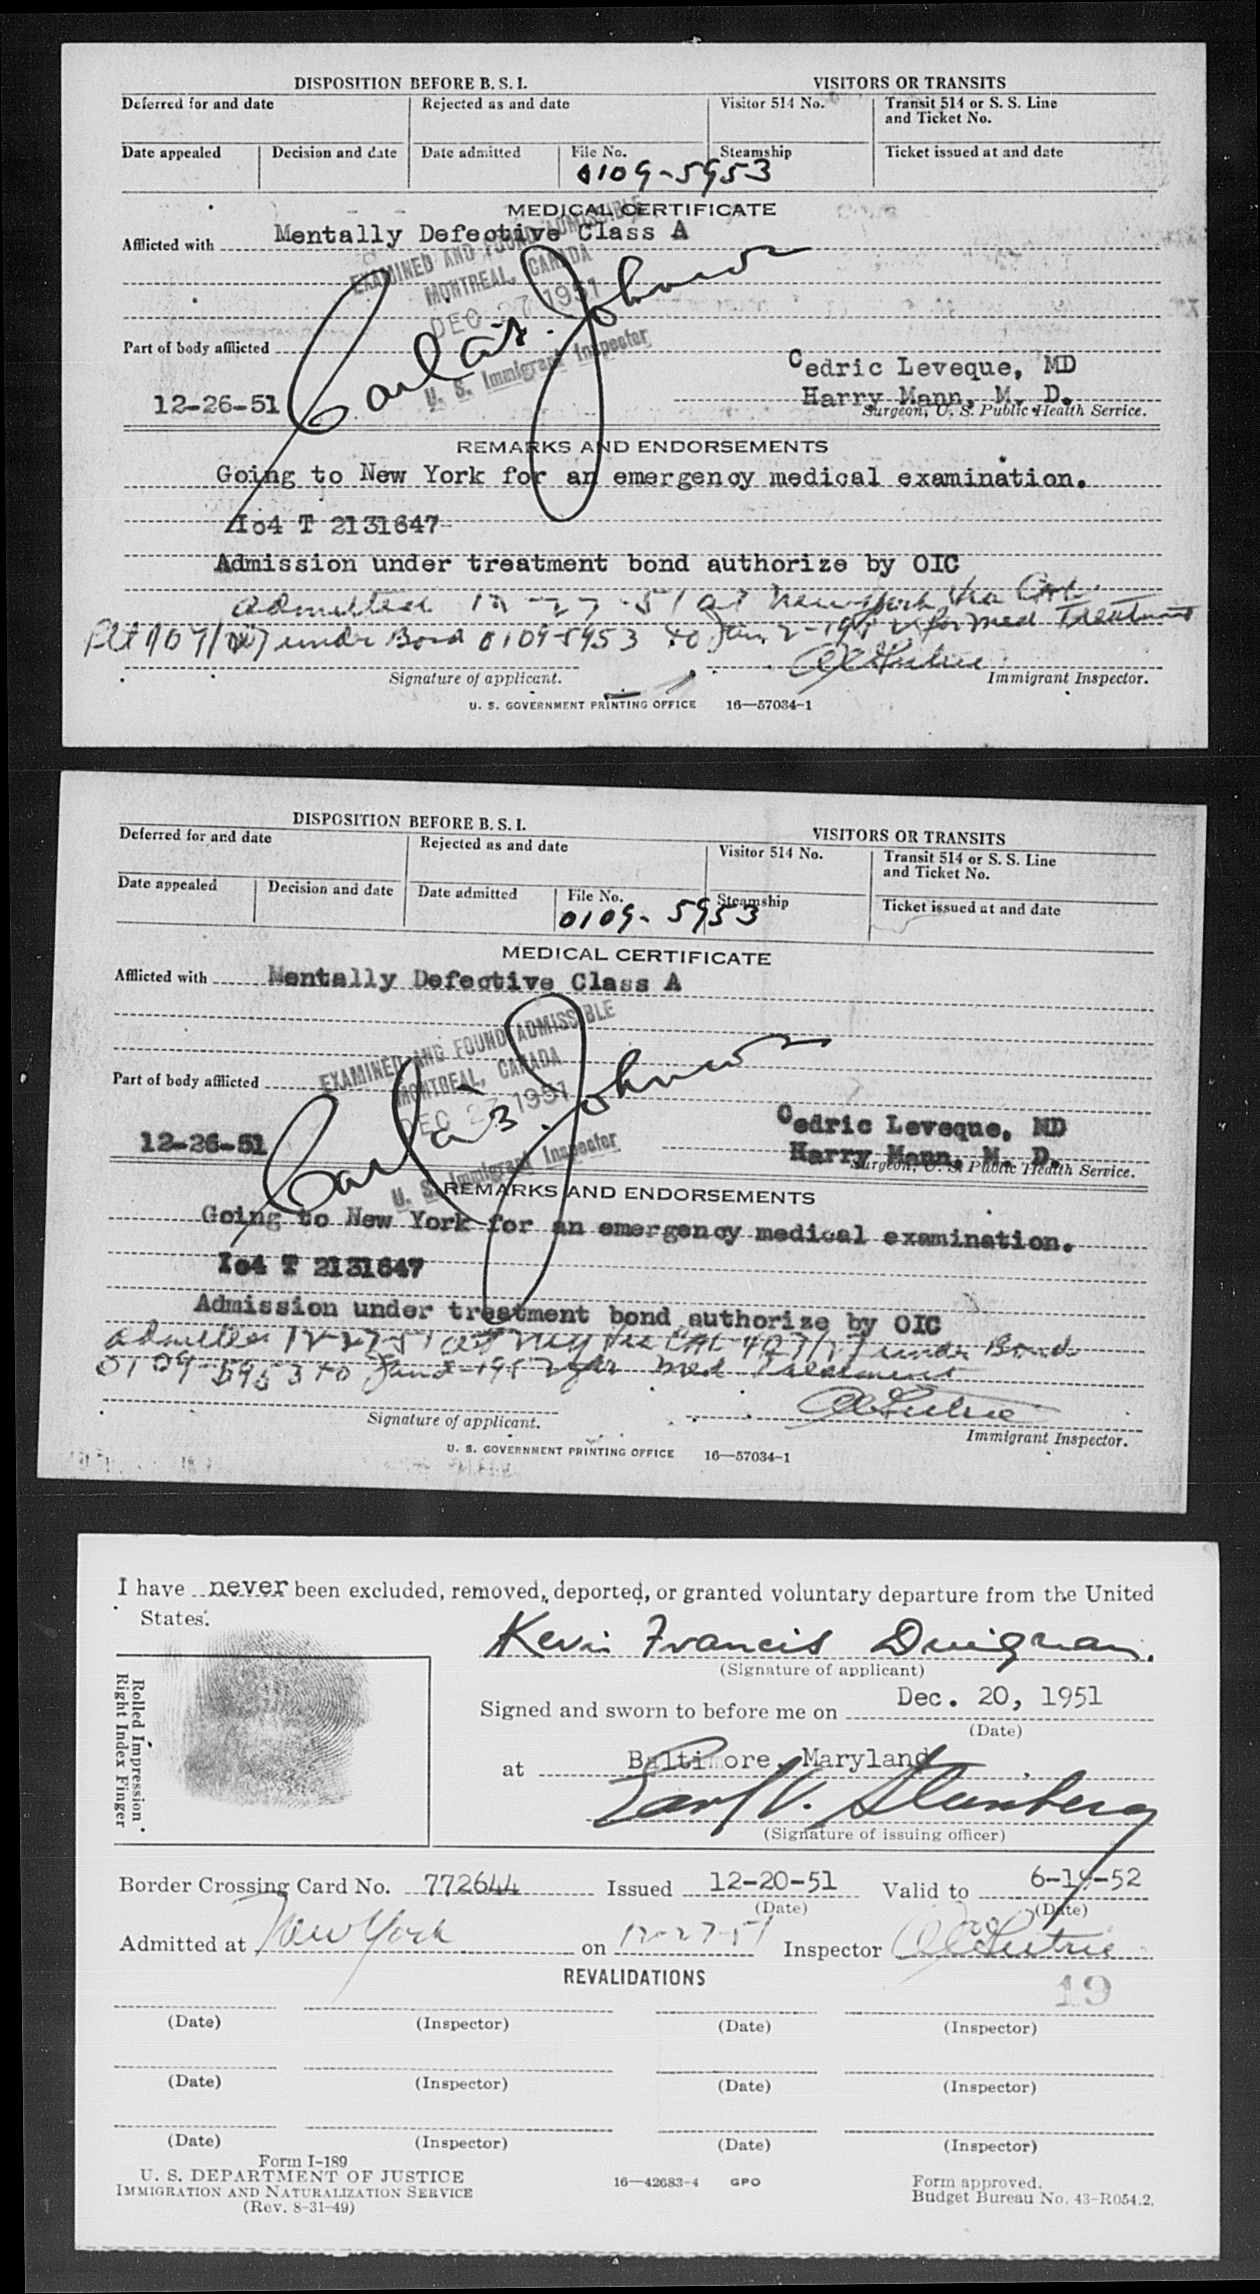 DISPOSITION BEFORE B. S. I.
VISITORS OR TRANSITS
Deferred for and date
Rejected as and date
Visitor 514 No.
Transit 514 or S. S. Line
and Ticket No.
Date appealed
Decision and date
Date admitted
File No.
Steamship
Ticket issued at and date
0109-5953
MEDICAL CERTIFICATE
Afflicted with Mentally Defective Class A
EXAMINED AND FOUND ADMISSIBLE
MONTREAL, CANADA
DEC 27 1951
U. S. Immigrant Inspector
Part of body afflicted
Johnson
Cedric Leveque, MD
12-26-51
Harry Mann, M. D.
Surgeon, U. S. Public Health Service.
REMARKS AND ENDORSEMENTS
Going to New York for an emergency medical examination.
Io4 T 2131647
Admission under treatment bond authorize by OIC
admitted 12-27-51 at New York via CAL
Flt 407/27 under Bond 0109-5953 to Jan 2-1952 for med Treatment
Signature of applicant.
Immigrant Inspector.
U. S. GOVERNMENT PRINTING OFFICE 16—57034-1
DISPOSITION BEFORE B. S. I.
VISITORS OR TRANSITS
Deferred for and date
Rejected as and date
Visitor 514 No.
Transit 514 or S. S. Line
and Ticket No.
Date appealed
Decision and date
Date admitted
File No.
Steamship
Ticket issued at and date
0109-5953
MEDICAL CERTIFICATE
Afflicted with Mentally Defective Class A
EXAMINED AND FOUND ADMISSIBLE
MONTREAL, CANADA
DEC 27 1951
U. S. Immigrant Inspector
Part of body afflicted
Johnson
Cedric Leveque, MD
12-26-51
Harry Mann, M. D.
Surgeon, U. S. Public Health Service.
REMARKS AND ENDORSEMENTS
Going to New York for an emergency medical examination.
Io4 T 2131647
Admission under treatment bond authorize by OIC
admitted 12-27-51 at NY via CAL 407/27 under Bond
0109-5953 to Jan 2-1952 for med Treatment
Signature of applicant.
Immigrant Inspector.
U. S. GOVERNMENT PRINTING OFFICE 16—57034-1
I have never been excluded, removed, deported, or granted voluntary departure from the United
States.
Kevin Francis Duignan.
(Signature of applicant)
Rolled Impression
Right Index Finger
Signed and sworn to before me on Dec. 20, 1951
(Date)
at Baltimore, Maryland
Earl V. Steinberg
(Signature of issuing officer)
Border Crossing Card No. 772644 Issued 12-20-51 Valid to 6-14-52
(Date) (Date)
Admitted at New York on 12-27-51 Inspector
REVALIDATIONS
19
(Date) (Inspector) (Date) (Inspector)
(Date) (Inspector) (Date) (Inspector)
(Date) (Inspector) (Date) (Inspector)
Form I-189
U. S. DEPARTMENT OF JUSTICE
IMMIGRATION AND NATURALIZATION SERVICE
(Rev. 8-31-49)
16—42683-4 GPO
Form approved.
Budget Bureau No. 43-R054.2.